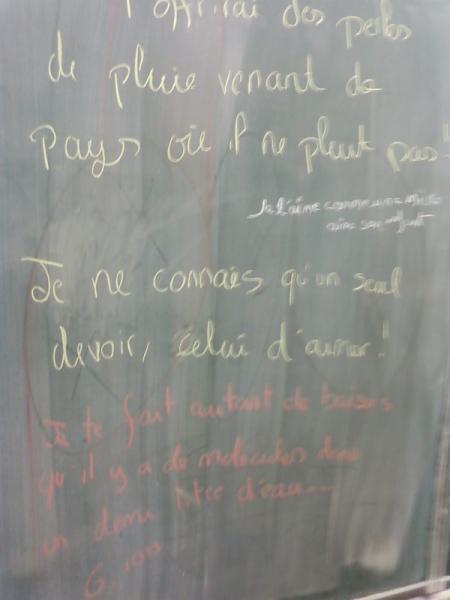 t'offrirai des perles
de pluie venant de
pays où il ne pleut pas!
Je l'aime comme une mère
aime son enfant
Je ne connais qu'un seul
devoir, celui d'aimer!
Je te fait autant de baisers
qu'il y a de molecules dans
un demi litre d'eau---